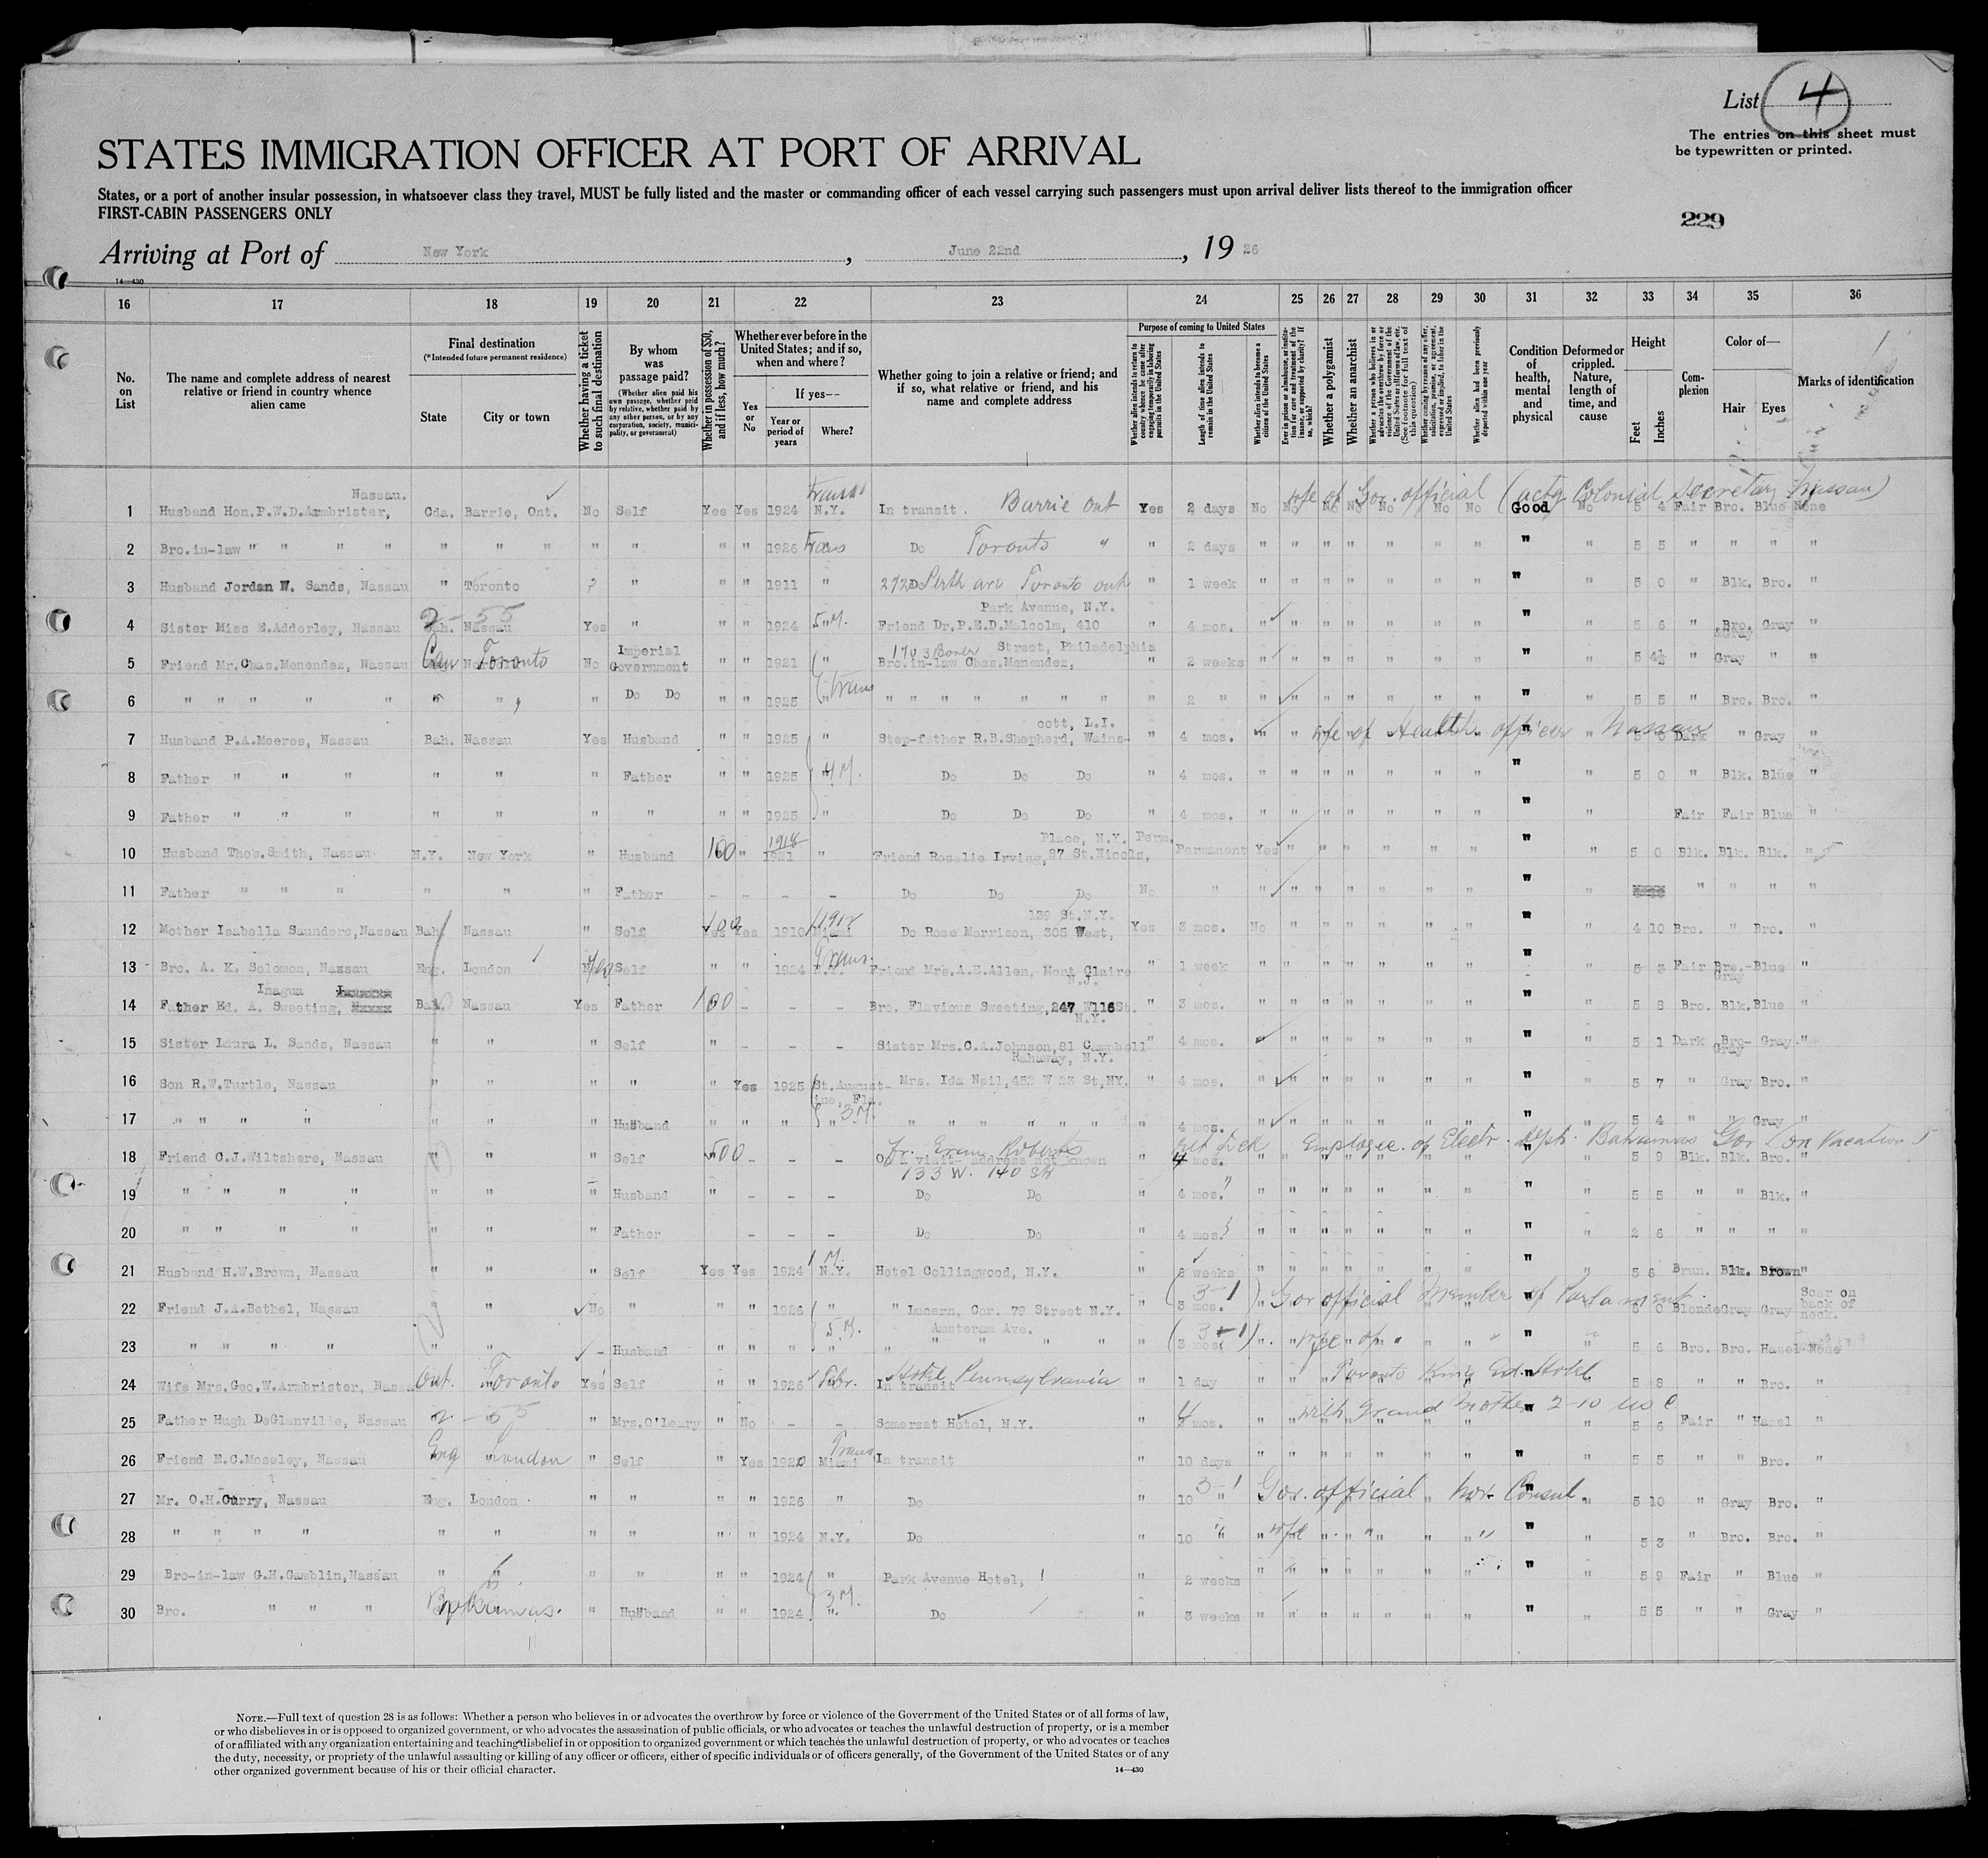 List 4
The entries on this sheet must
be typewritten or printed.
STATES IMMIGRATION OFFICER AT PORT OF ARRIVAL
States, or a port of another insular possession, in whatsoever class they travel, MUST be fully listed and the master or commanding officer of each vessel carrying such passengers must upon arrival deliver lists thereof to the immigration officer
FIRST-CABIN PASSENGERS ONLY
229
Arriving at Port of New York, June 22nd, 1926
14—430
16 17 18 19 20 21 22 23 24 25 26 27 28 29 30 31 32 33 34 35 36
No. on List
The name and complete address of nearest relative or friend in country whence alien came
Final destination
(*Intended future permanent residence)
State City or town
Whether having a ticket to such final destination
By whom was passage paid?
(Whether alien paid his own passage, whether paid by relative, whether paid by any other person, or by any corporation, society, municipality, or government)
Whether in possession of $50, and if less, how much?
Whether ever before in the United States; and if so, when and where?
Yes or No
If yes—
Year or period of years Where?
Whether going to join a relative or friend; and if so, what relative or friend, and his name and complete address
Purpose of coming to United States
Whether alien intends to return to country whence he came after engaging temporarily in laboring pursuits in the United States
Length of time alien intends to remain in the United States
Whether alien intends to become a citizen of the United States
Ever in prison or almshouse, or institution for care and treatment of the insane, or supported by charity? If so, which?
Whether a polygamist
Whether an anarchist
Whether coming by reason of any offer, solicitation, promise, or agreement, expressed or implied, to labor in the United States
Whether alien had been previously deported within one year
Condition of health, mental and physical
Deformed or crippled. Nature, length of time, and cause
Height
Feet Inches
Complexion
Color of—
Hair Eyes
Marks of identification
1 Husband Hon.P.W.D.Armbrister, Nassau. Cda. Barrie, Ont. No Self Yes Yes 1924 N.Y. Transit In transit. Barrie Ont Yes 2 days No No No No No No No Good No 5 4 Fair Bro. Blue None
wife of Gov. official (actg Colonial Secretary Nassau)
2 Bro.in-law " " " " " " " " " " " 1926 Trans Do Toronto " " 2 days " " " " " " " " " 5 5 " " " "
3 Husband Jordan W. Sands, Nassau " Toronto ? " " " 1911 " 272 Do Perth ave Toronto ont " 1 week " " " " " " " " " 5 0 " Blk. Bro. "
4 Sister Miss E.Adderley, Nassau Bah. Nassau 2-55 Yes " " " 1924 5 M. Friend Dr.P.E.D.Malcolm, 410 Park Avenue, N.Y. " 4 mos. " " " " " " " " " 5 6 " Bro. Gray "
5 Friend Mr.Chas.Menendez, Nassau Can Toronto No Imperial Government " " 1921 " Bro.in-law Chas.Menendez, 1703 Street, Philadelphia " 2 weeks " " " " " " " " " 5 4½ " Gray " "
6 " " " " " " " " Do Do " " 1925 " Trans " " " " " " " " 2 " " " " " " " " " " 5 5 " Bro. Bro. "
7 Husband P.A.Meeres, Nassau Bah. Nassau Yes Husband " " 1925 " Step-father R.B.Shepherd, Wainscott, L.I. " 4 mos. " " wife of Health officer Nassau Dark " Gray "
8 Father " " " " " " Father " " 1925 4 M. Do Do Do " 4 mos. " " " " " " " " " 5 0 " Blk. Blue "
9 Father " " " " " " " " " 1925 " Do Do Do " 4 mos. " " " " " " " " " Fair Fair Blue "
10 Husband Thos.Smith, Nassau N.Y. New York " Husband 100 " 1918 1921 " Friend Rosalie Irving,87 St.Nicols, Place, N.Y. Perm. Permanent Yes " " " " " " " " 5 0 Blk. Blk. Blk. "
11 Father " " " " " " Father - - - - Do Do Do No " " " " " " " " " " " " " "
12 Mother Isabella Saunders,Nassau Bah. Nassau " Self 100 Yes Yes 1910 1912 Miami Do Rose Morrison, 305 West, 139 St.N.Y. Yes 3 mos. No " " " " " " " " 4 10 Bro. " Bro. "
13 Bro. A. K. Solomon, Nassau Eng. London Yes Self " " 1924 N.Y. Trans. Friend Mrs.A.E.Allen, Mont Claire N.J. " 1 week " " " " " " " " " 5 3 Fair Bro.-Gray Blue "
14 Father Ed. A. Sweeting, Inagua Bah. Nassau Yes Father 100 - - - Bro. Flavious Sweeting,247 W116St. N.Y. " 3 mos. " " " " " " " " " 5 8 Bro. Blk. Blue "
15 Sister Laura L. Sands, Nassau " " " Self " - - - Sister Mrs.C.A.Johnson,81 Campbell Rahaway, N.Y. " 4 mos. " " " " " " " " " 5 1 Dark Bro-Gray Gray "
16 Son R.W.Turtle, Nassau " " " " " Yes 1925 St.Augustine, Fla. Mrs. Ida Neil,452 W 23 St,NY. " 4 mos. " " " " " " " " " 5 7 " Gray Bro. "
17 " " " " " " " Husband " " " " 3 M. " " " " " " " " 4 mos. " " " " " " " " " 5 4 " " Gray "
18 Friend C.J.Wiltshere, Nassau " " " Self 500 - - - On a visit- address not known Roberts 133 W. 140 St " 4 mos. " 5 9 Blk. Blk. Bro. "
Employee of Electr. dept. Bahamas Gov (on vacation)
19 " " " " " " " Husband " - - - Do Do " 4 mos. " " " " " " " " " 5 5 " " Blk. "
20 " " " " " " " Father - - - Do Do " 4 mos. " " " " " " " " " 2 6 " " " "
21 Husband H.W.Brown, Nassau " " " Self Yes Yes 1924 1 M. N.Y. Hotel Collingwood, N.Y. " 8 weeks " " " " " " " " " 5 6 Brun. Blk. Brown "
22 Friend J.A.Bethel, Nassau " " No " " " 1926 " " Lucern, Cor. 79 Street N.Y. Amsteram Ave. " 3 mos. (3-1) " Gov official Member of Parlament 6 0 Blonde Gray Gray Scar on back of neck.
23 " " " " " " - Husband " " " 5 M. " " " " " 3 mos. (3-1) " wife of " " " " " 5 6 Bro. Bro. Hazel None
24 Wife Mrs.Geo.W.Armbrister, Nassau Ont. Toronto Yes Self " " 1926 In transit Hotel Pennsylvania " 1 day " " Toronto King Ed. Hotel 5 8 " " Bro. "
25 Father Hugh DeGlanville, Nassau 2-55 " Mrs.O'Leary " No - - Somerset Hotel, N.Y. " 4 mos. " " with Grand Mother 2-10 5 6 Fair " Hazel "
26 Friend E.C.Moseley, Nassau Eng London " Self " Yes 1920 Trans Miami In transit " 10 days " " " " " " " " " 5 5 " " Bro. "
27 Mr. O.H.Curry, Nassau Eng. London " " " " 1926 " Do " 10 " 3-1 Gov. official Nor. Consul. 5 10 " Gray Bro. "
28 " " " " " " " " " " 1924 N.Y. Do " 10 " " wife " " " " " " " 5 3 " Bro. Bro. "
29 Bro-in-law G.H.Gamblin,Nassau " " " " " " 1924 " Park Avenue Hotel, " 2 weeks " " " " " " " " " 5 9 Fair " Blue "
30 Bro. " " " Bahamas. " Husband " " 1924 3 M. " Do " 3 weeks " " " " " " " " " 5 5 " " Gray "
NOTE.—Full text of question 28 is as follows: Whether a person who believes in or advocates the overthrow by force or violence of the Government of the United States or of all forms of law,
or who disbelieves in or is opposed to organized government, or who advocates the assassination of public officials, or who advocates or teaches the unlawful destruction of property, or is a member
of or affiliated with any organization entertaining and teaching disbelief in or opposition to organized government or which teaches the unlawful destruction of property, or who advocates or teaches
the duty, necessity, or propriety of the unlawful assaulting or killing of any officer or officers, either of specific individuals or of officers generally, of the Government of the United States or of any
other organized government because of his or their official character.
14—430